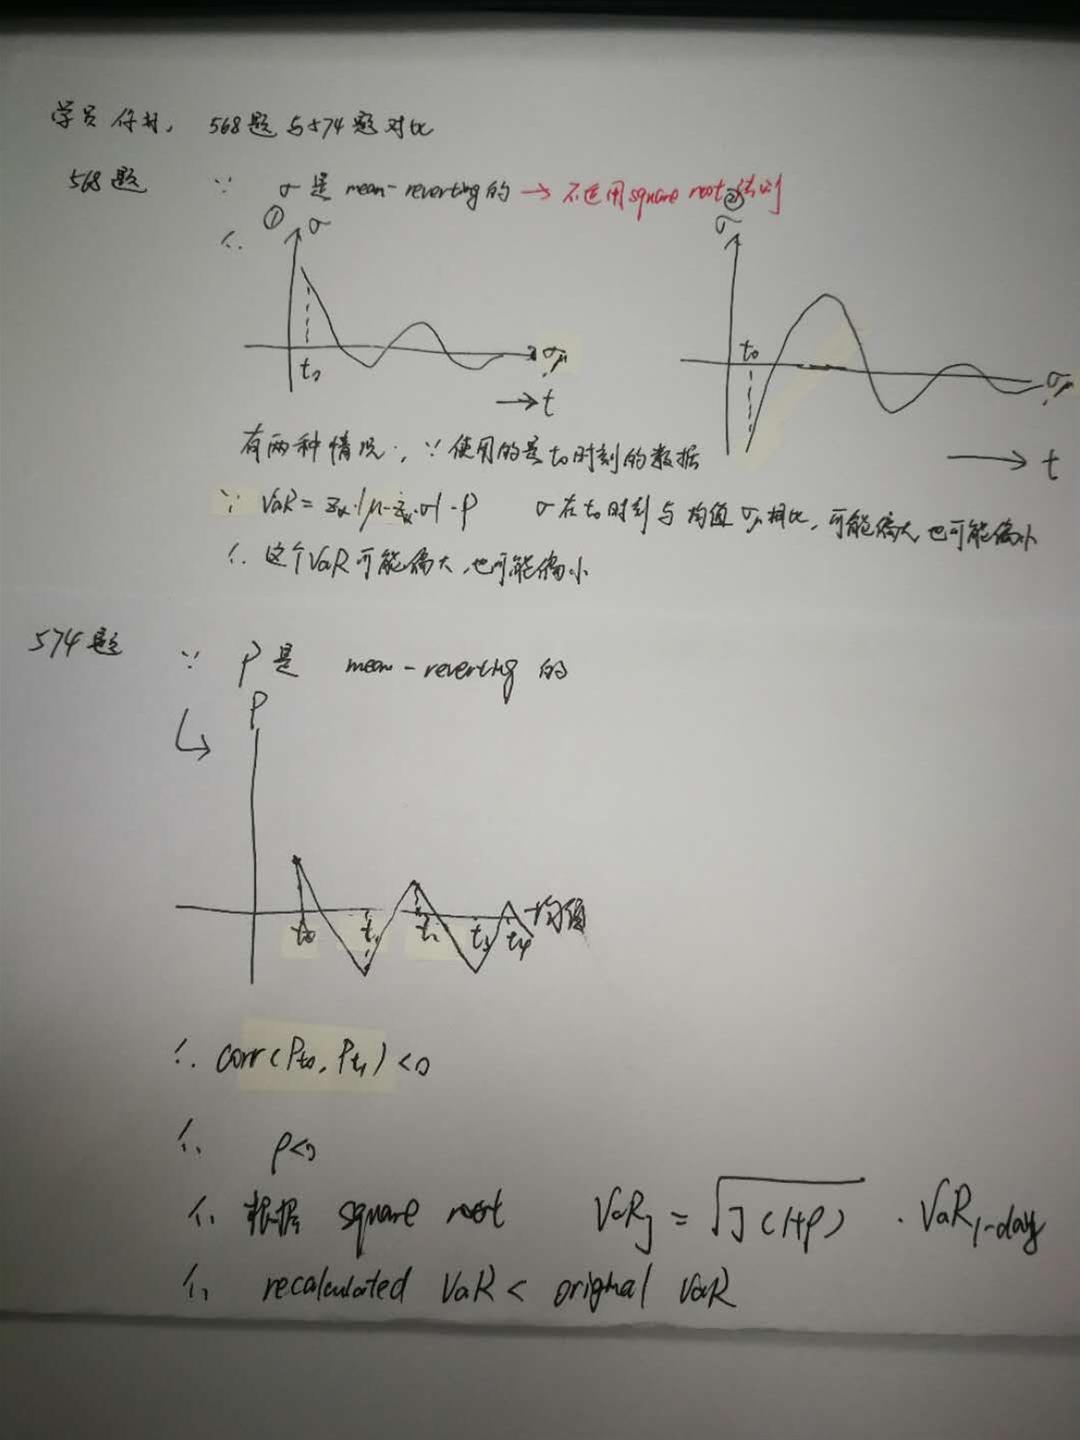 学员你好， 568题与574题对比
568题 ∵ σ是 mean-reverting的 → 不适用square root 法则
∴ ① σ
② σ
t₀ σμ
→ t
t₀ σμ
→ t
有两种情况，∵使用的是t₀时刻的数据
∵ VaR = zα·|μ-zα·σ|·P σ在t₀时刻与均值σμ相比，可能偏大，也可能偏小
∴ 这个VaR可能偏大，也可能偏小
574题 ∵ P是 mean-reverting 的
P
t₀ t₁ t₂ t₃ t₄ 均值
∴ corr(Pt₀, Pt₁) <0
∴ ρ<0
∴ 根据 square root VaR_J = √J(1+ρ) · VaR_1-day
∴ recalculated VaR < original VaR